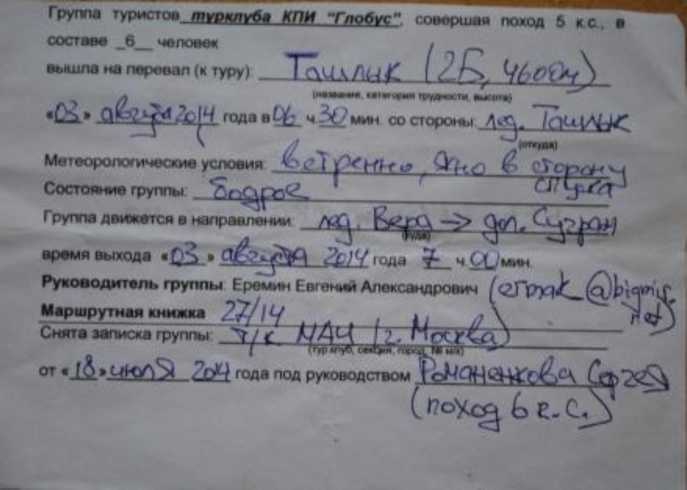 Группа туристов турклуба КПИ "Глобус", совершая поход 5 к.с., в
составе _6_ человек
вышла на перевал (к туру): Ташлык (2Б, 4600м)
(название, категория трудности, высота)
«03» августа 2014 года в 06 ч.30 мин. со стороны: лед. Ташлык
(откуда)
Метеорологические условия: Ветренно, ясно в сторону
спуска
Состояние группы: Бодрое
Группа движется в направлении: лед. Вера → дол. Сугран
(куда)
время выхода «03» августа 2014 года 7 ч.00 мин.
Руководитель группы: Еремин Евгений Александрович (ermak@bigmir.
net)
Маршрутная книжка 27/14
Снята записка группы: т/к МАИ (г. Москва)
(тур.клуб, секция, город, № м/к)
от «18» июля 2014 года под руководством Романенкова Сергея
(поход 6 к.с.)